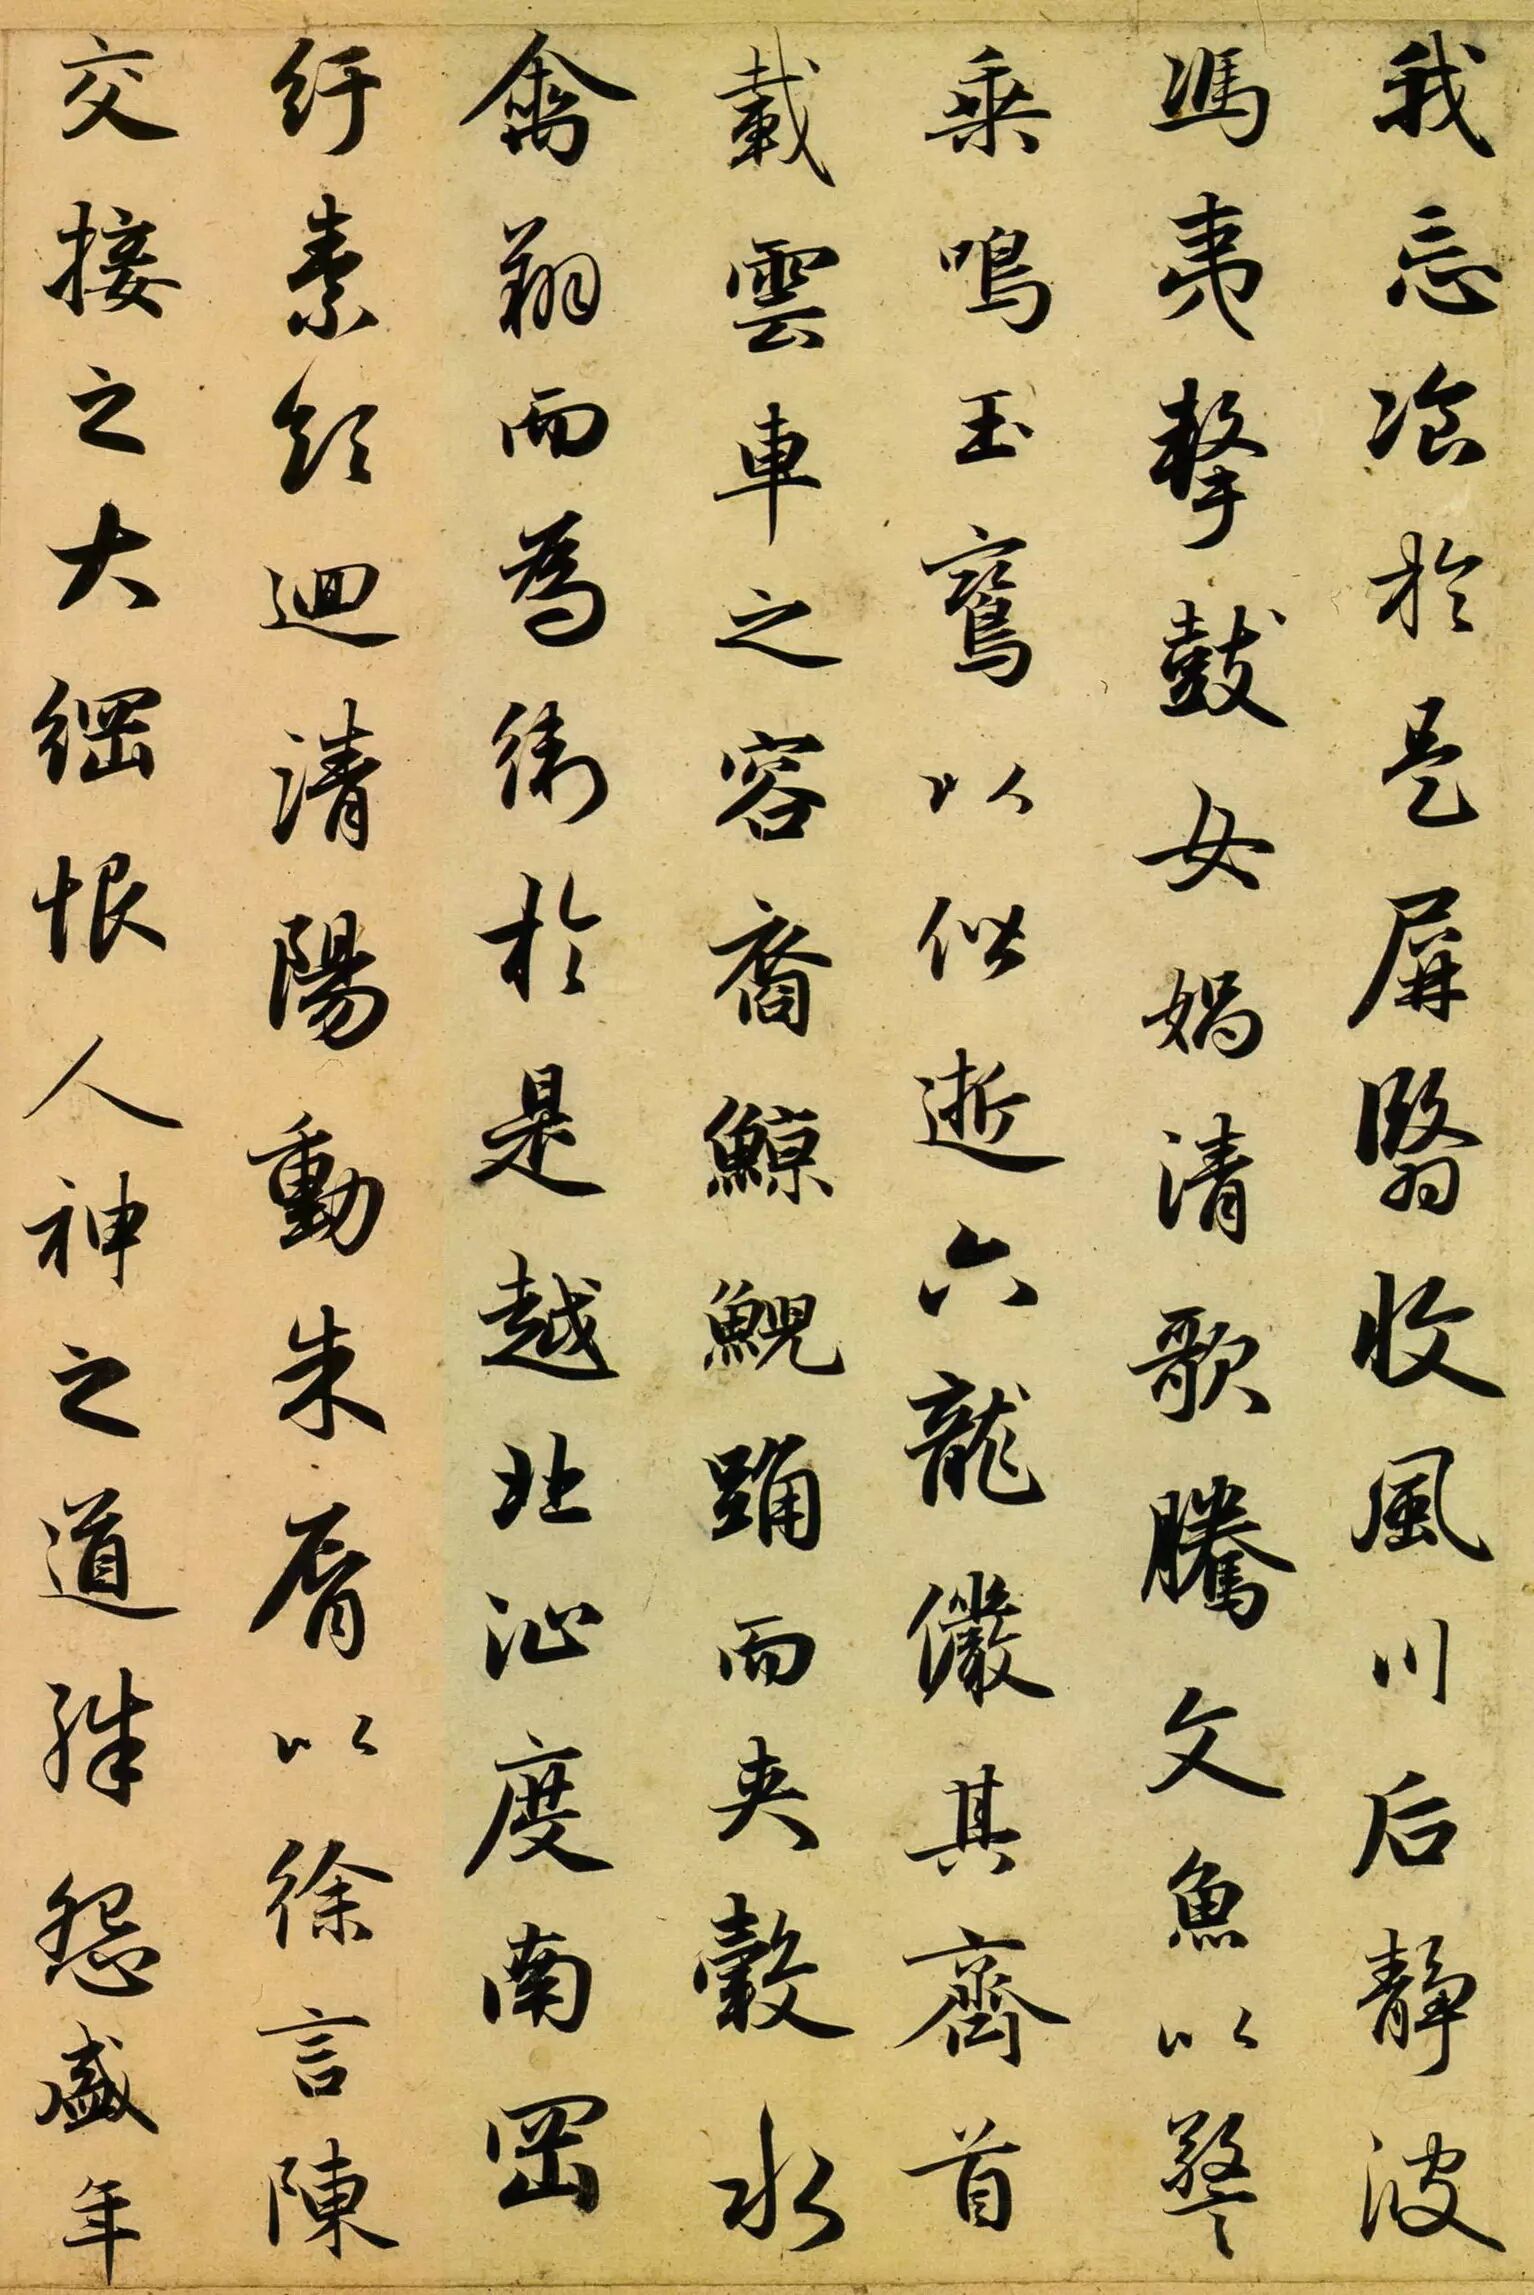 我忘湌於是屏翳收風川后靜波
馮夷擊鼓女媧清歌騰文魚以警
乘鳴玉鸞以偕逝六龍儼其齊首
載雲車之容裔鯨鯢踊而夾轂水
禽翔而為衛於是越北沚度南岡
紆素領迴清陽動朱脣以徐言陳
交接之大綱恨人神之道殊怨盛年